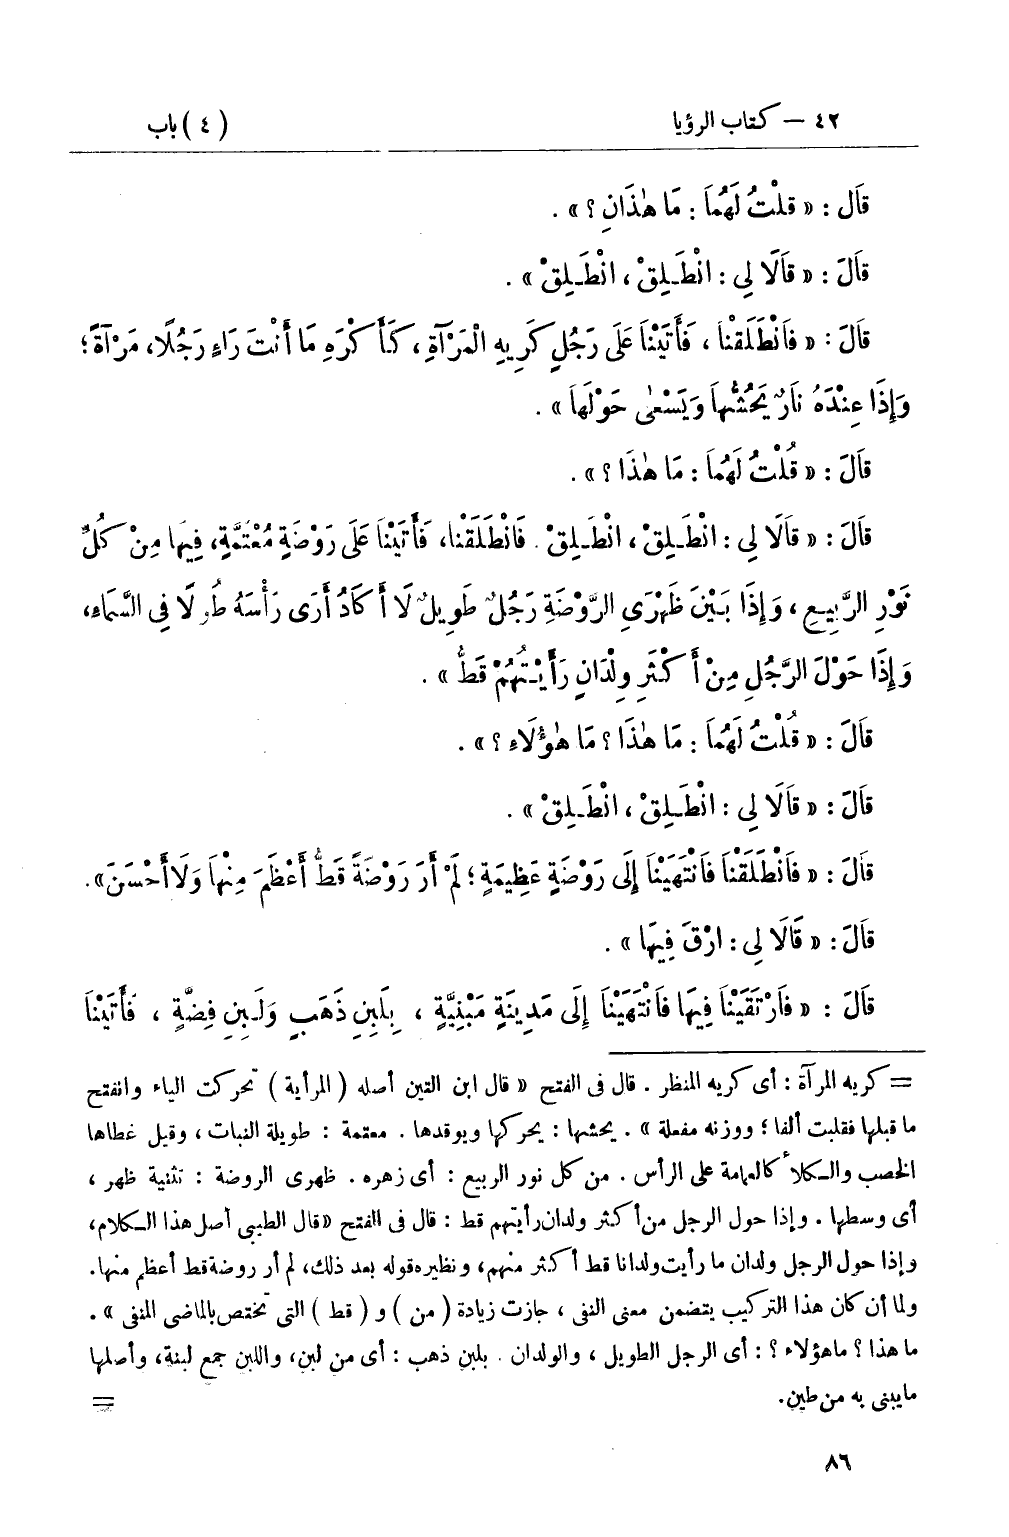 ٤٢ – كتاب الرؤيا
( ٤ ) باب
قَال : « قلْتُ لَهُمَا : مَا هٰذَانِ ؟ » .
قَالَ : « قَالَا لِي : انْطَـلِقْ ، انْطَـلِقْ » .
قَالَ : « فَانْطَلَقْنَا ، فَأَتَيْنَا عَلَى رَجُلٍ كَرِيهِ الْمَرْآةِ ، كَأَكْرَهِ مَا أَنْتَ رَاءٍ رَجُلًا، مَرْآةً ؛
وَإِذَا عِنْدَهُ نَارٌ يَحُشُّهَا وَيَسْعٰى حَوْلَهَا » .
قَالَ : « قُلْتُ لَهُمَا : مَا هٰذَا ؟ » .
قَالَ : « قَالَا لِي : انْطَـلِقْ ، انْطَـلِقْ . فَانْطَلَقْنَا، فَأَتَيْنَا عَلَى رَوْضَةٍ مُعْتَمَّةٍ، فِيهَا مِنْ كُلِّ
نَوْرِ الرَّبِيعِ ، وَإِذَا بَيْنَ ظَهْرَىِ الرَّوْضَةِ رَجُلٌ طَوِيلٌ لَا أَكَادُ أَرَى رَأْسَهُ طُولًا فِى السَّمَاءِ،
وَإِذَا حَوْلَ الرَّجُلِ مِنْ أَكْثَرِ وِلْدَانٍ رَأَيْتُهُمْ قَطُّ » .
قَالَ : « قُلْتُ لَهُمَا : مَا هٰذَا ؟ مَا هٰؤُلَاءِ ؟ » .
قَالَ : « قَالَا لِي : انْطَـلِقْ ، انْطَـلِقْ » .
قَالَ : « فَانْطَلَقْنَا فَانْتَهَيْنَا إِلَى رَوْضَةٍ عَظِيمَةٍ ؛ لَمْ أَرَ رَوْضَةً قَطُّ أَعْظَمَ مِنْهَا وَلَا أَحْسَنَ» .
قَالَ : « قَالَا لِي : ارْقَ فِيهَا » .
قَالَ : « فَارْتَقَيْنَا فِيهَا فَانْتَهَيْنَا إِلَى مَدِينَةٍ مَبْنِيَّةٍ ، بِلَبِنِ ذَهَبٍ وَلَـبِنِ فِضَّةٍ ، فَأَتَيْنَا
= كريه المرآة : أى كريه المنظر . قال فى الفتح « قال ابن التين أصله ( المرأية ) تحركت الياء وانفتح
ما قبلها فقلبت ألفا ؛ ووزنه مفعلة » . يحشها : يحركها ويوقدها . معتمة : طويلة النبات ، وقيل غطاها
الخصب والـكلأ كالعمامة على الرأس . من كل نور الربيع : أى زهره . ظهرى الروضة : تثنية ظهر ،
أى وسطها . وإذا حول الرجل من أكثر ولدان رأيتهم قط : قال فى الفتح «قال الطيبى أصل هذا الـكلام،
وإذا حول الرجل ولدان ما رأيت ولدانا قط أكثر منهم، ونظيره قوله بعد ذلك، لم أر روضة قط أعظم منها.
ولما أن كان هذا التركيب يتضمن معنى النفى ، جازت زيادة ( من ) و ( قط ) التى تختص بالماضى المنفى » .
ما هذا ؟ ما هؤلاء ؟ : أى الرجل الطويل ، والولدان . بلبن ذهب : أى من لبن، واللبن جمع لبنة، وأصلها
ما يبنى به من طين.
=
٨٦